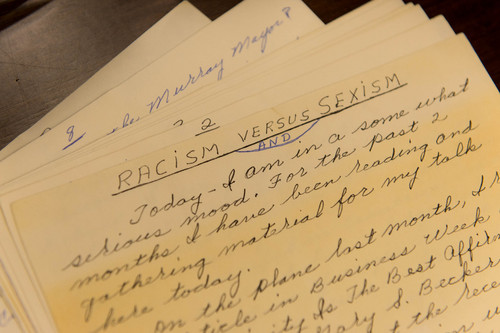 8
the Murray Mayor?
2
RACISM VERSUS SEXISM
AND
Today - I am in a some what
serious mood. For the past 2
months I have been reading and
gathering material for my talk
here today.
On the plane last month, I
article in Business Week
Is The Best
S. Becker
the